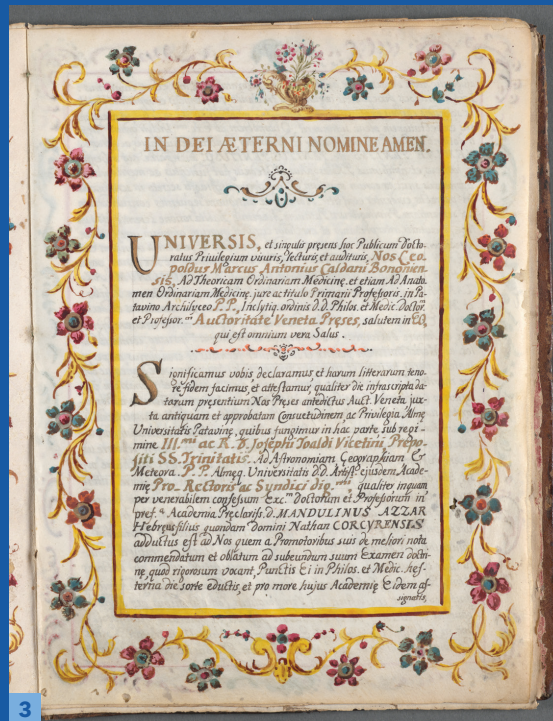 IN DEI ÆTERNI NOMINE AMEN.
UNIVERSIS, et singulis presens hoc Publicum Docto-
ratus Privilegium visuris, lecturis, et audituris, Nos Leo-
poldus Marcus Antonius Caldani Bononien-
sis, Ad Theoricam Ordinariam Medicinę, et etiam Ad Anato-
men Ordinariam Medicinę, jure ac titulo Primarii Professoris, in Pa-
tavino Archilyceo P. P., Inclytiq. ordinis D.D. Philos. et Medic. Doctor.
et Professor.um Auctoritate Veneta Pręses, salutem in EO,
qui est omnium vera Salus.
Significamus vobis, declaramus et harum litterarum teno-
re fidem facimus, et attestamur, qualiter die infrascripta da-
torum presentium Nos Pręses antedictus Auct. Veneta jux-
ta antiquam et approbatam Consuetudinem ac Privilegia Almę
Universitatis Patavinę, quibus fungimur in hac parte sub regi-
mine Ill.mi ac R. D. Josephi Toaldi Vicetini, Prępo-
siti SS. Trinitatis. Ad Astronomiam Geographiam &
Meteora. P. P. Almęq. Universitatis D.D. Artist. ejusdem Acade-
mię Pro. Rectoris ac Syndici dig.mi qualiter inquam
per venerabilem consessum Exc.m Doctorum et Professorum in
pref.a Academia Pręclariss. D. MANDULINUS AZZAR
Hebręus filius quondam Domini Nathan CORCYRENSIS
adductus est ad Nos quem a Promotoribus suis de meliori nota
commendatum et oblatum ad subeundum suum Examen doctri-
nę quod rigorosum vocant, Punctis Ei in Philos. et Medic. hes-
terna die sorte eductis, et pro more hujus Academię Eidem as-
signatis,
3